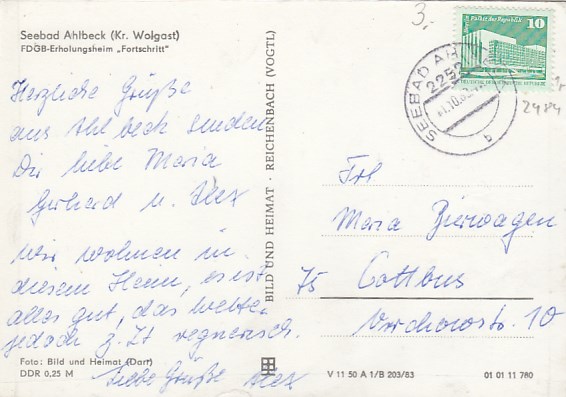 Seebad Ahlbeck (Kr. Wolgast)
FDGB-Erholungsheim „Fortschritt"
Herzliche Grüße
aus Ahlbeck senden
Dir liebe Maria
Gerhard u. Alex
Wir wohnen in
diesem Heim, es ist
alles gut, das Wetter
jedoch z. Zt regnerisch.
Liebe Grüße Alex
Foto: Bild und Heimat (Dart)
DDR 0,25 M
BILD UND HEIMAT · REICHENBACH (VOGTL)
3,-
Palast der Republik 10
SEEBAD AH
2252
q
2484
Frl
Maria Bierwagen
75 Cottbus
Virchowstr. 10
V 11 50 A 1/B 203/83
01 01 11 780